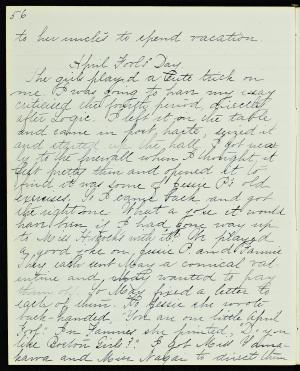 56
to her uncle's to spend vacation.
April Fools' Day
The girls played a cute trick on
me. I was going to have my essay
criticised the fourth period, directly
after Logic. I left it on the table
and came in post haste, seized it
and started up the hall. I got near-
ly to the firewall when I thought it
felt pretty thin and opened it to
find it was some of Jessie P's old
exercises. So I came back and got
the right one. What a joke it would
have been if I had gone way up
to Miss with it. We played
a good joke on Jessie C. and Fannie
They each sent Mary a comical val
entine and wanted to pay
them up. So Mary fixed a letter to
each of them. To Jessie she wrote
back-handed, "You are one little April
Fool." In Fannie's she printed, "Do you
like Boston Girls?" I got Miss
kawa and Miss to direct them